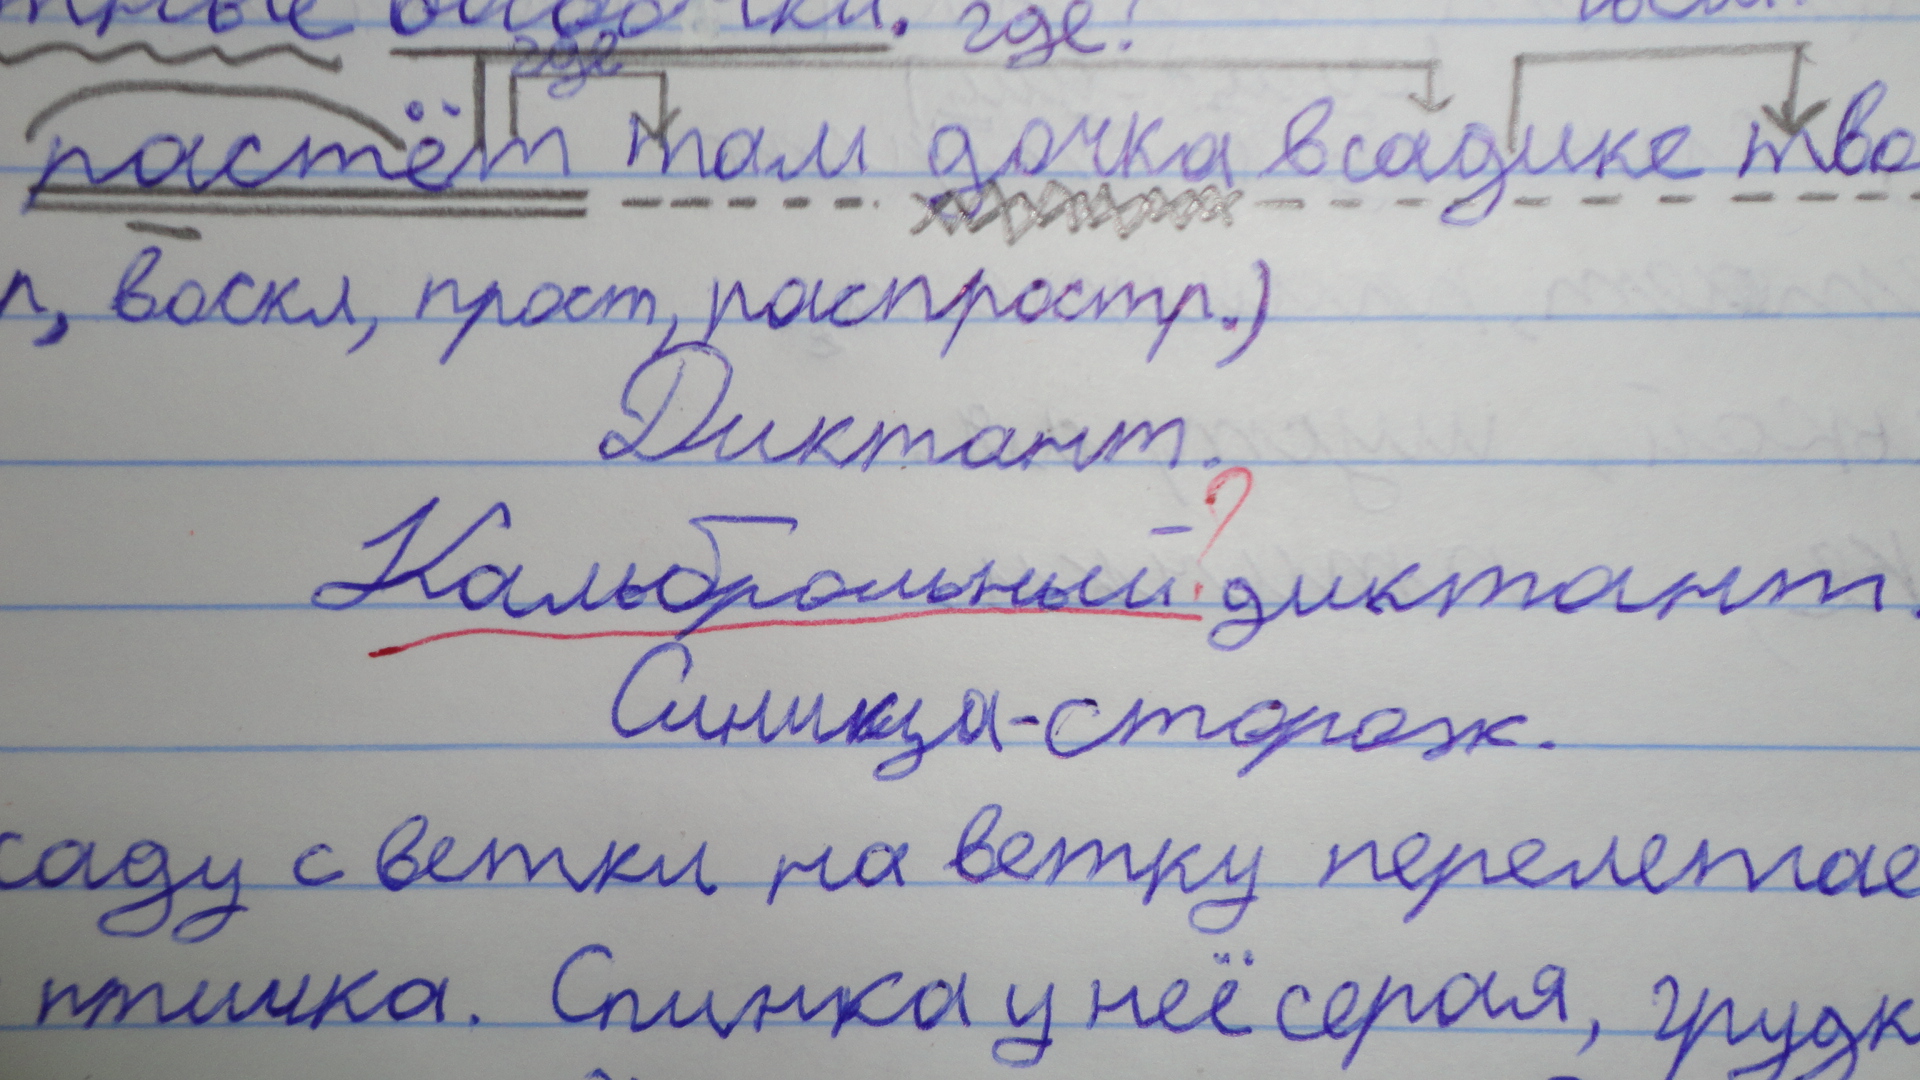 где?
где
растёт там дочка в садике тво
п, воскл, прост, распростр.)
Диктант.
Кальброльный ? диктант.
Синица-сторож.
саду с ветки на ветку перелетае
птичка. Спинка у неё серая, грудк